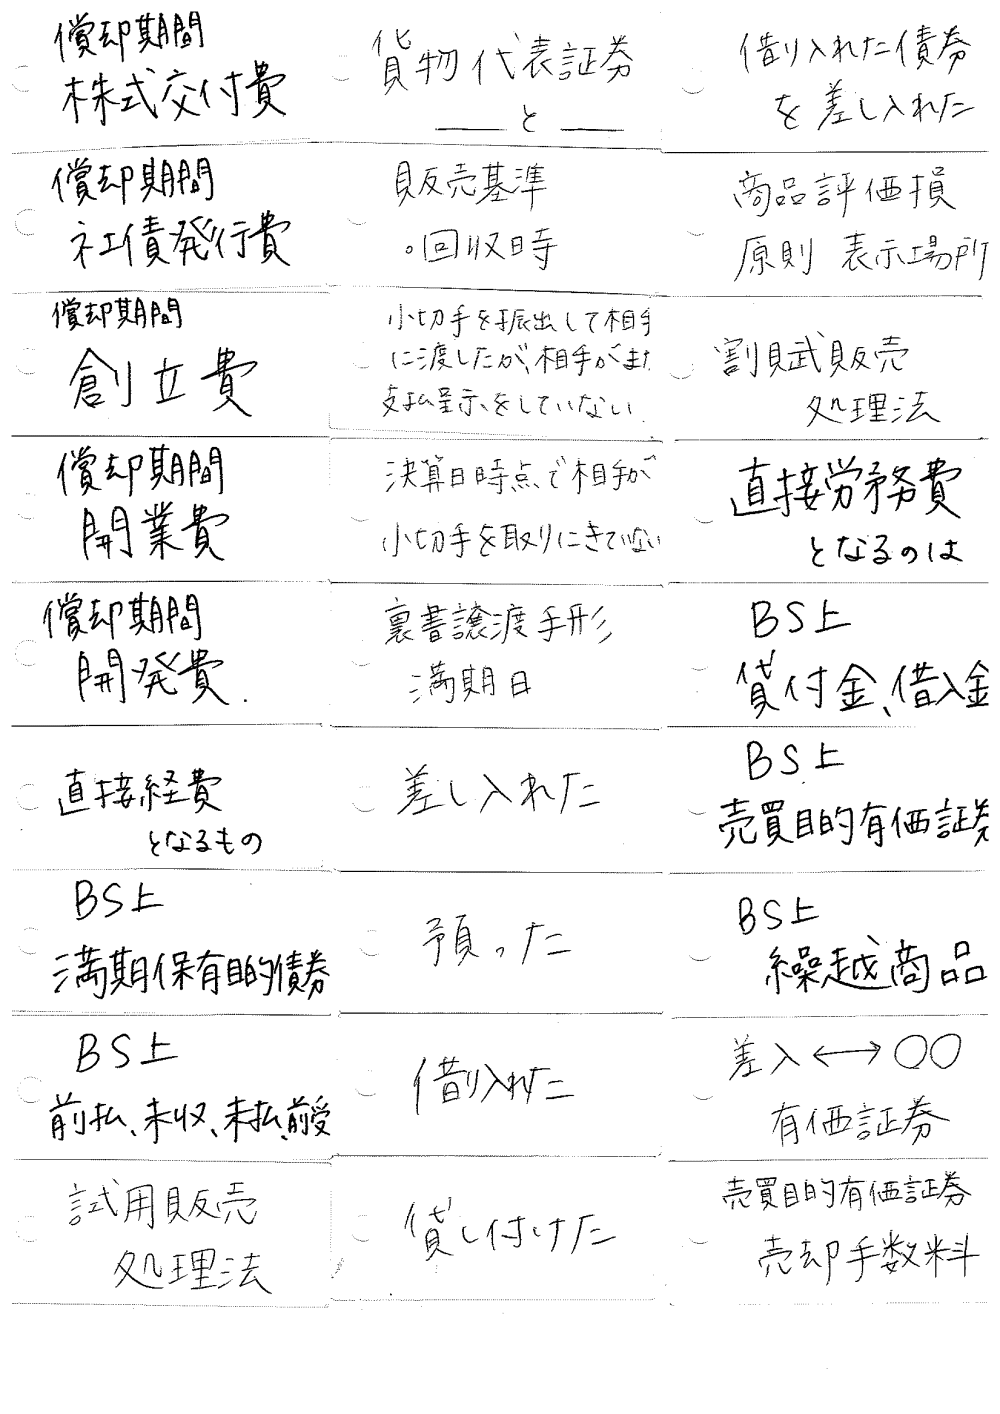 償却期間
株式交付費
償却期間
社債発行費
償却期間
創立費
償却期間
開業費
償却期間
開発費.
直接経費
となるもの
BS上
満期保有目的債券
BS上
前払、未収、未払、前受
試用販売
処理法
貨物代表証券
＿＿と＿＿
販売基準
。回収日時
小切手を振出して相手
に渡したが、相手がまだ
支払呈示をしていない
決算日時点で相手が
小切手を取りにきていない
裏書譲渡手形
満期日
差し入れた
預った
借り入れた
貸し付けた
借り入れた債券
を差し入れた
商品評価損
原則 表示場所
割賦販売
処理法
直接労務費
となるのは
BS上
貸付金、借入金
BS上
売買目的有価証券
BS上
繰越商品
差入←→〇〇
有価証券
売買目的有価証券
売却手数料